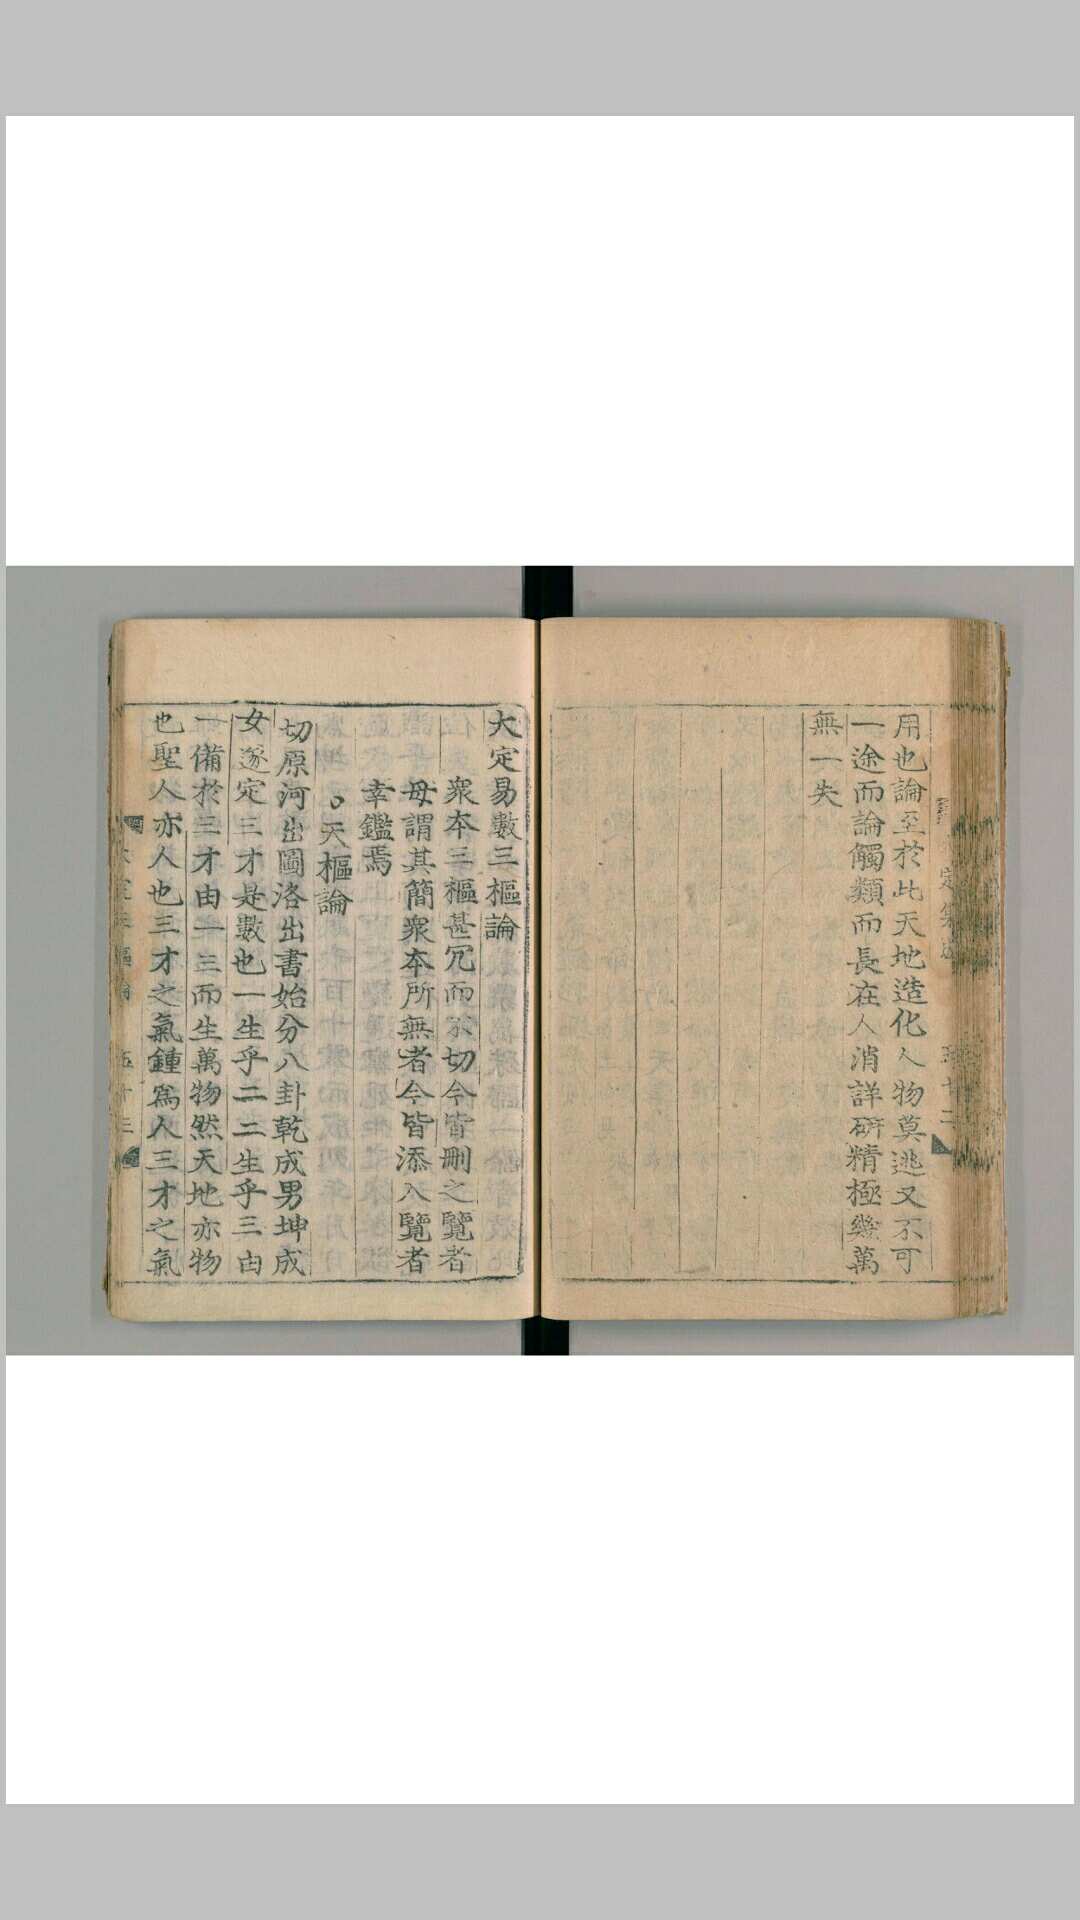 用也論至於此天地造化人物莫逃又不可
一途而論觸類而長在人消詳硏精極幾萬
無一失
大定易數三樞論
衆本三樞甚冗而不切今皆刪之覽者
毋謂其簡衆本所無者今皆添入覽者
幸鑑焉
○天樞論
切原河出圖洛出書始分八卦乾成男坤成
女遂定三才是數也一生乎二二生乎三由
一備於三才由一三而生萬物然天地亦物
也聖人亦人也三才之氣鍾爲人三才之氣
五十三